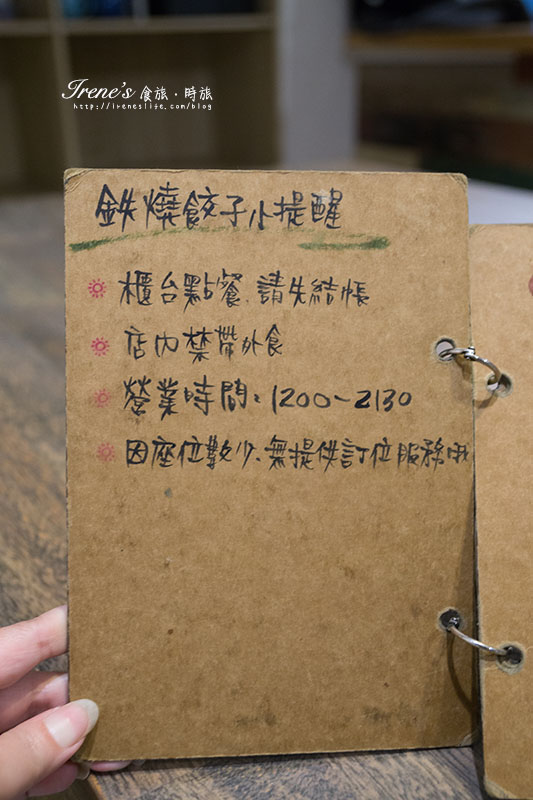 Irene's 食旅.時旅
http://ireneslife.com/blog
鉄燒餃子小提醒
櫃台點餐.請先結帳
店內禁帶外食
營業時間:1200~2130
因座位數少、無提供訂位服務哦